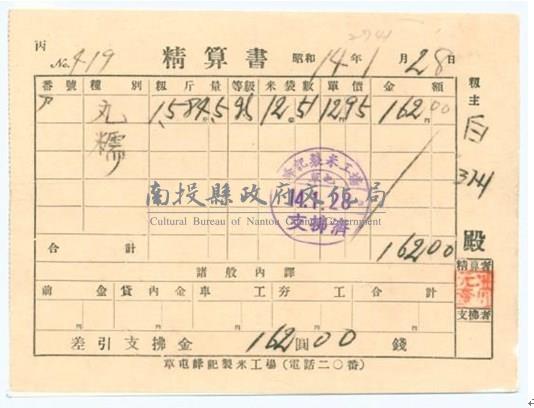 2741
丙 No. 419 精算書 昭和14年1月28日
番號 種別 籾斤量 等級 米袋數 單價 金額 籾主
ア 丸糯 1,584.5 96 12.51 12.95 162.00
374
殿
製米工場
14.1.28
支拂濟
南投縣政府文化局
Cultural Bureau of Nantou County Government
合計 16200
精算者
諸般內譯
前金 貸內金 車工 夯工 合計
支拂者
差引支拂金 162圓00錢
草屯峰記製米工場(電話二〇番)